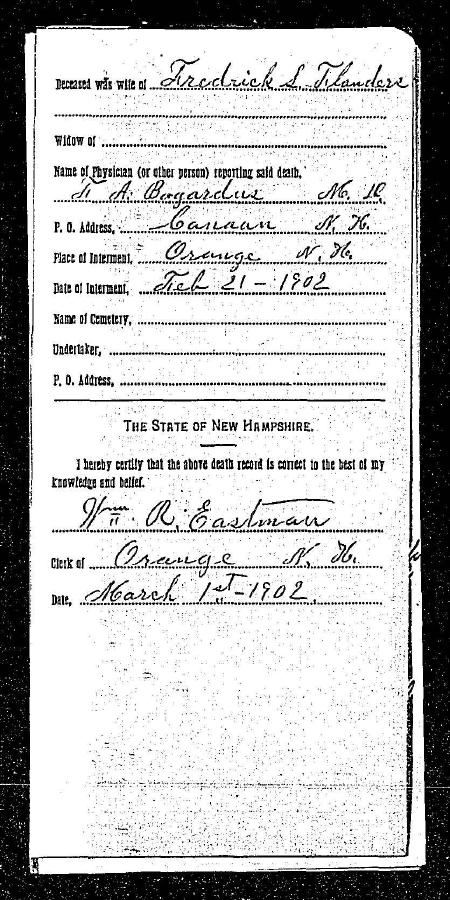 Deceased was wife of Fredrick S. Flanders
Widow of
Name of Physician (or other person) reporting said death.
F. A. Bogardus M. D.
P. O. Address, Canaan N. H.
Place of Interment, Orange N. H.
Date of Interment, Feb 21 - 1902
Name of Cemetery,
Undertaker,
P. O. Address,
THE STATE OF NEW HAMPSHIRE.
I hereby certify that the above death record is correct to the best of my
knowledge and belief.
Wm. R. Eastman
Clerk of Orange N. H.
Date, March 1st - 1902.